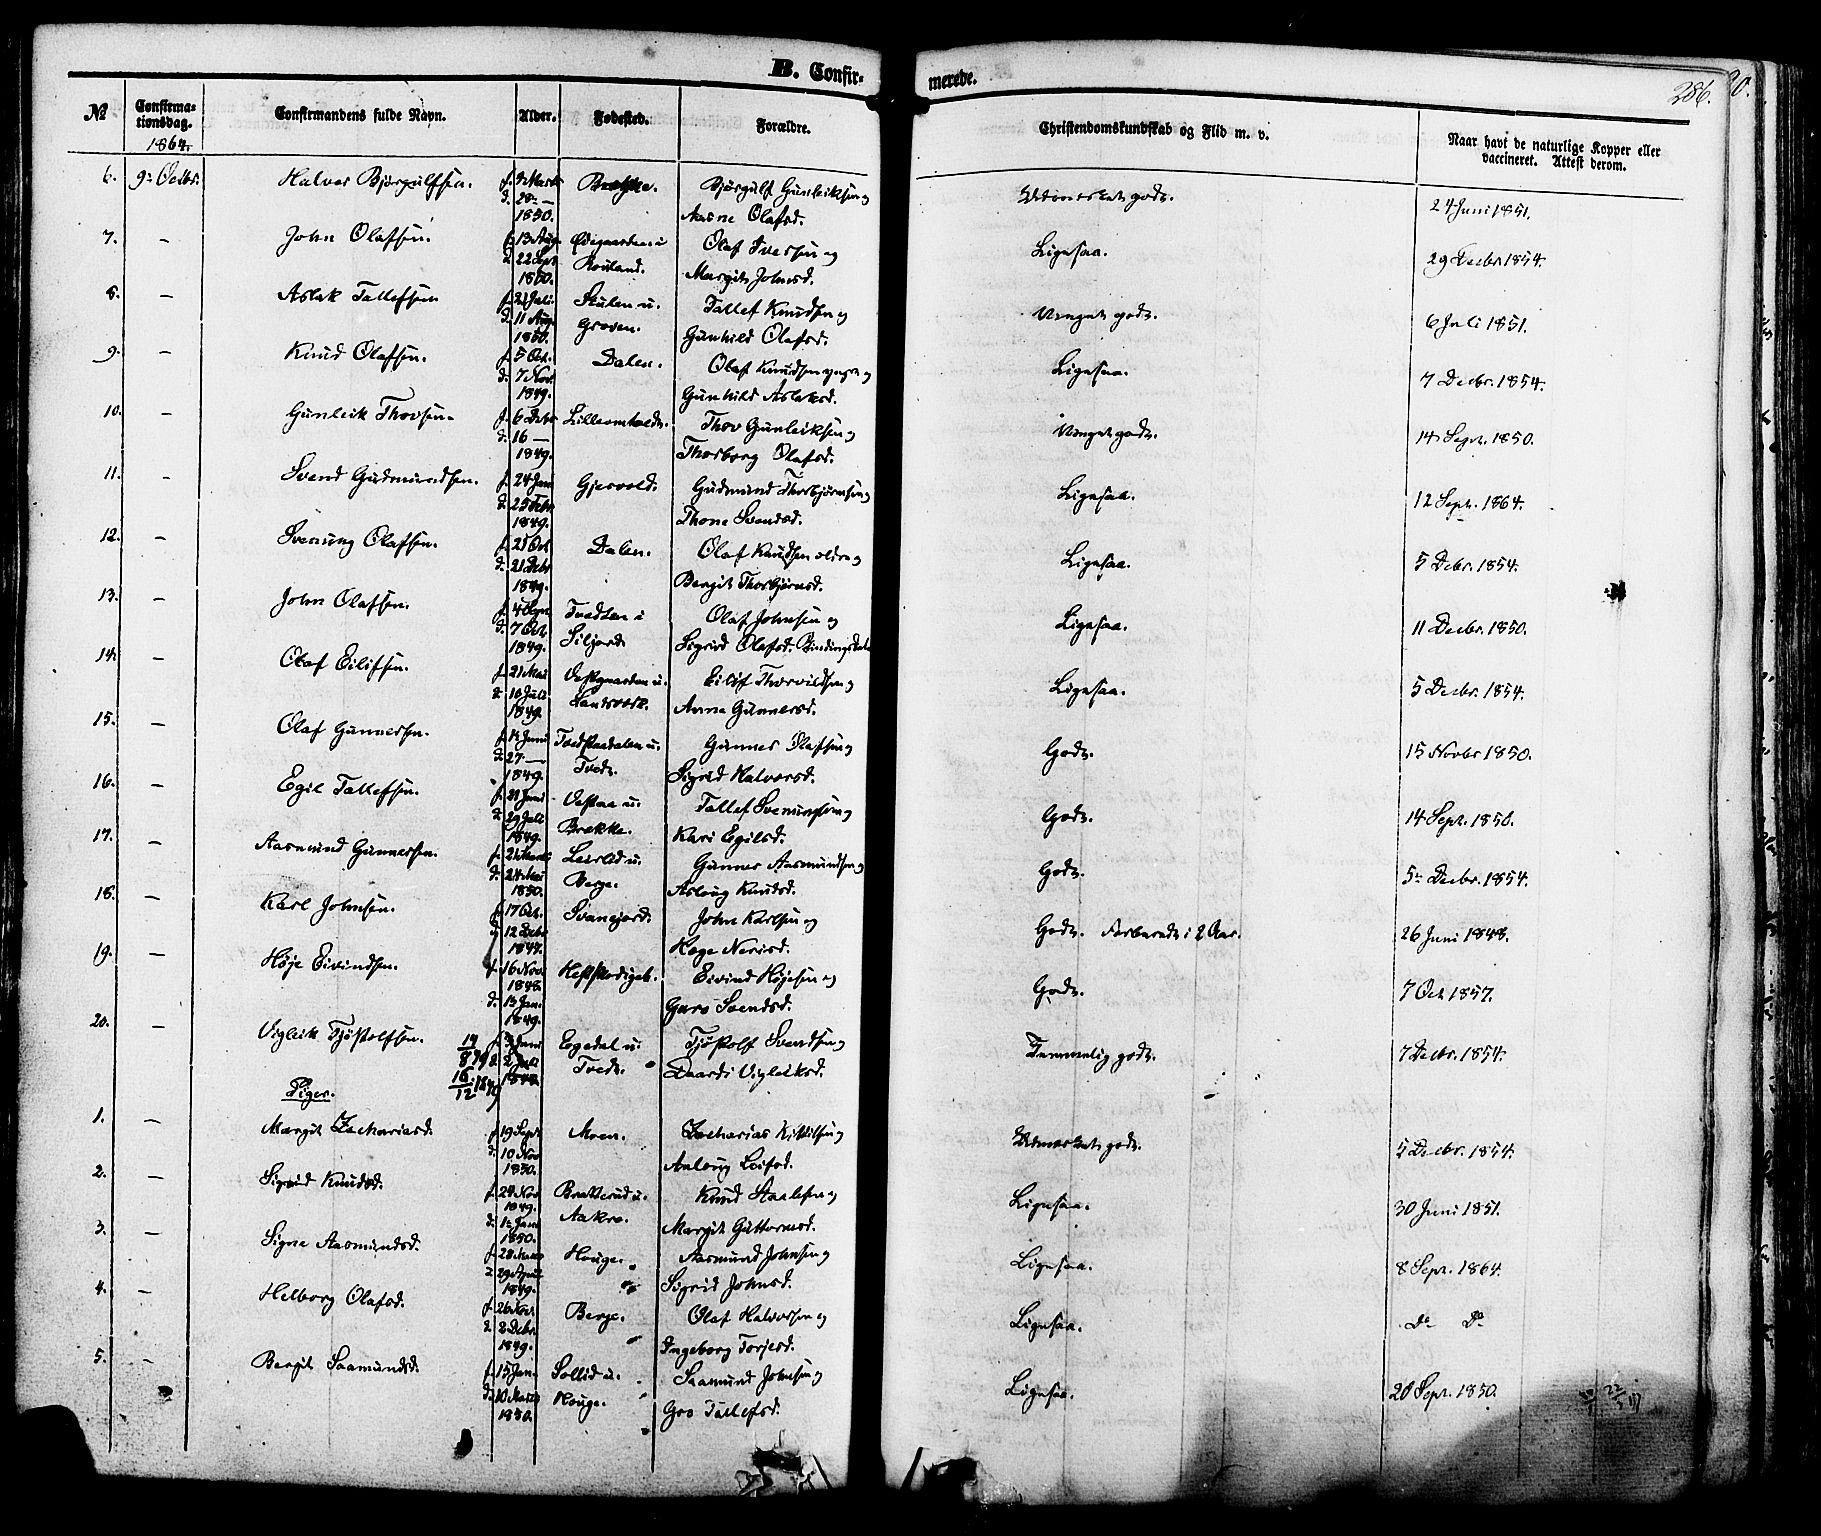 B. Confir-
merede.
286.
№
Confirma-
tionsdag.
1864.
Confirmandens fulde Navn.
Alder.
Fødested.
Forældre.
Christendomskundskab og Flid m. v.
Naar havt de naturlige Kopper eller
vaccineret. Attest derom.
6. 9 Octbr. Halvor Bjørgulfsen. f. 9 Marts Bjørgulf Gunleiksen og Udmerket godt. 24 Juni 1851.
d. 28 —
1850. Aasne Olafsd.
7. — John Olafsen. f. 13 Aug. Ødegaarden u Olaf Iversen og Ligesaa. 29 Decbr 1854.
d. 22 Sept Rouland.
1850. Margit Johnsd.
8. — Aslak Tallefsen f. 21 Juli Skulen u. Tallef Knudsen og Meget godt. 6 Juli 1851.
d. 11 Aug. Groven.
1850. Gunhild Olafsd.
9. — Knud Olafsen. f. 5 Oct. Dalen. Olaf Knudsen yngre og Ligesaa. 7 Decbr. 1854.
d. 7 Nov.
1849. Gunhild Aslaksd.
10. — Gunleik Thovsen. f. 6 Debr Thov Gunleiksen og Meget godt. 14 Sept. 1850.
d. 16 —
1849. Thorborg Olafsd.
11. — Svend Gudmundsen. f. 24 Jan Gjervold. Gudmund Thorbjørnsen og Ligesaa. 12 Sept. 1864.
d. 25 Febr
1849. Thone Svendsd.
12. — Svenung Olafsen. f. 25 Oct Dalen. Olaf Knudsen eldre og Ligesaa. 5 Debr. 1854.
d. 21 Debr
1849. Bergit Thorbjørnsd.
13. — John Olafsen. f. 4 Sept Tvedten i Olaf Johnsen og Ligesaa. 11 Decbr. 1850.
d. 7 Oct. Siljord.
1849. Sigrid Olafsd. Bindingsdalen
14. — Olaf Eilifsen. f. 21 Mai Vestgaarden u. Eilif Thorvildsen og Ligesaa. 5 Decbr. 1854.
d. 10 Juli Landsverk.
1849. Anne Gunnersd.
15. — Olaf Gunnersen. f. 14 Juni Tvedstaadalen u. Gunner Olafsen og Godt. 15 Novbr 1850.
d. 27 — Tvedt.
1849. Sigrid Halvorsd.
16. — Egil Tallefsen. f. 21 Juni Vestaa u. Tallef Svenungsen og Godt. 14 Sept. 1850.
d. 29 Juli Brekke.
1849. Kari Egilsd.
17. — Aasmund Gunnersen. f. 21 Marts Leirlid u. Gunner Aasmundsen og Godt. 5 Decbr. 1854.
d. 24 Mai Berge.
1850. Aslaug Knudsd.
18. — Karl Johnsen. f. 17 Oct. Svanejord. John Karlsen og Godt. Forberedt i 2 Aar. 26 Juni 1848.
d. 12 Debr
1847. Hege Nerisd.
19. — Høje Eivindsen. f. 16 Nov. Eivind Højesen og Godt. 7 Oct 1857.
1848.
d. 13 Jan. Guro Svendsd.
1849.
20. — Vigleik Tjøstolfsen. f. 3 Juni Egedal u. Tjøstolf Svendsen og Temmelig godt. 7 Decbr. 1854.
d. 2 Juli Tvedt. Vigleiksd.
1848.
Piger.
1. — Margit Zachariasd. f. 19 Sept Moen. Zacharias Kittilsen og Udmerket godt. 5 Decbr. 1854.
d. 10 Nov
1850. Aslaug Leifsd.
2. — Sigrid Knudsd. f. 29 Nov Bratterud u. Knud Staalesen og Ligesaa. 30 Juni 1851.
1849.
d. 1 Jan Aakre.
1850. Margit Guttormsd.
3. — Signe Aasmundsd. f. 28 Marts Houge. Aasmund Johnsen og Ligesaa. 8 Sept. 1864.
d. 29 April
1849. Sigrid Johnsd.
4. — Helborg Olafsd. f. 26 Nov. Berge. Olaf Halvorsen og Ligesaa. Do Do
d. 2 Debr.
1849. Ingeborg Torjesd.
5. — Bergit Saamundsd. f. 15 Jan. Sollid u. Saamund Johnsen og Ligesaa. 20 Sept. 1850.
d. 10 Marts Houge.
1850. Gro Tallefsd.